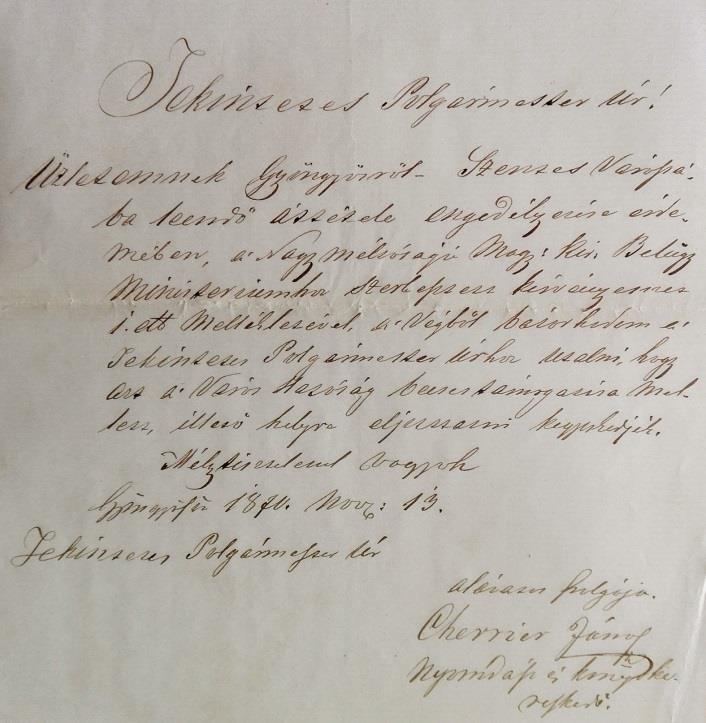 Tekintetes Polgármester Úr!
Üzletemnek Gyöngyösről Szentes Várossá-
ba leendő áttétele engedélyezése érde-
mében, a Nagy méltóságú Magy: kir. Belügy
Ministeriumhoz
i. ett Melléklésével, a végből bátorkodom a
Tekintetes Polgármester Úrhoz utalni, hogy
azt a Város Hatóság becses támogatása mel-
lett, illető helyre eljuttatni kegyeskedjék.
Mély tisztelettel vagyok
Gyöngyösön 18 Nov: 13.
Tekintetes Polgármester Úr
alázatos szolgája.
Cherrier János
Nyomdász és könyvke-
reskedő.